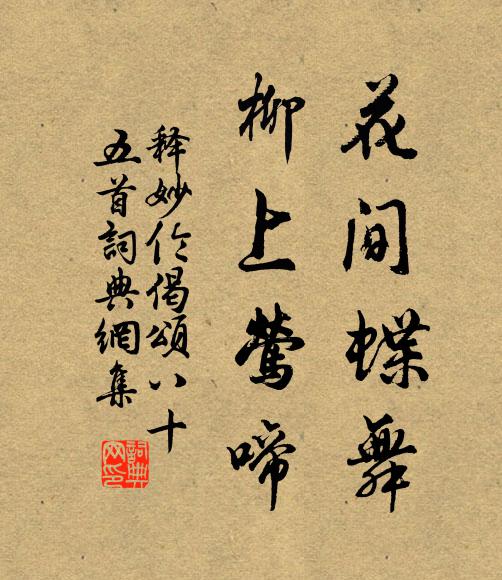 花间蝶舞
柳上莺啼
释妙伦偈颂八十
五首詞典網集
詞典
网印